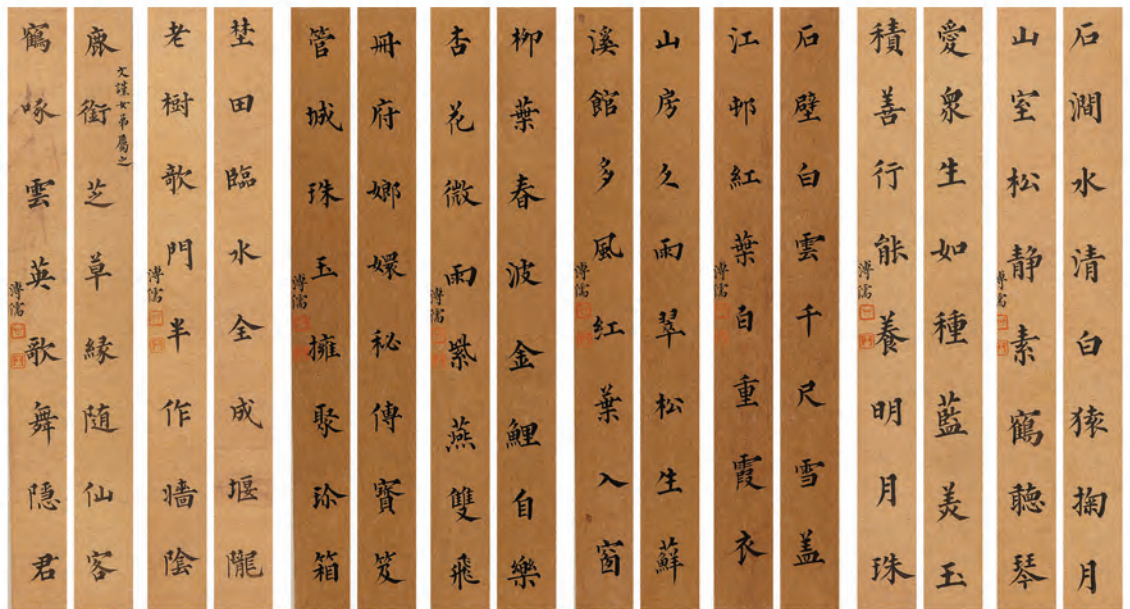 石澗水清白猿掬月
山室松静素鶴聽琴
溥儒
愛衆生如種藍美玉
積善行能養明月珠
溥儒
石壁白雲千尺雪盖
江邨紅葉自重霞衣
溥儒
山房久雨翠松生蘚
溪館多風紅葉入窗
溥儒
柳葉春波金鯉自樂
杏花微雨紫燕雙飛
溥儒
冊府嫏嬛秘傳寶笈
管城珠玉擁聚珍箱
溥儒
埜田臨水全成堰隴
老樹歌門半作墻陰
溥儒
鹿銜芝草緣随仙客
文謹女弟屬之
鶴啄雲英歌舞隱君
溥儒